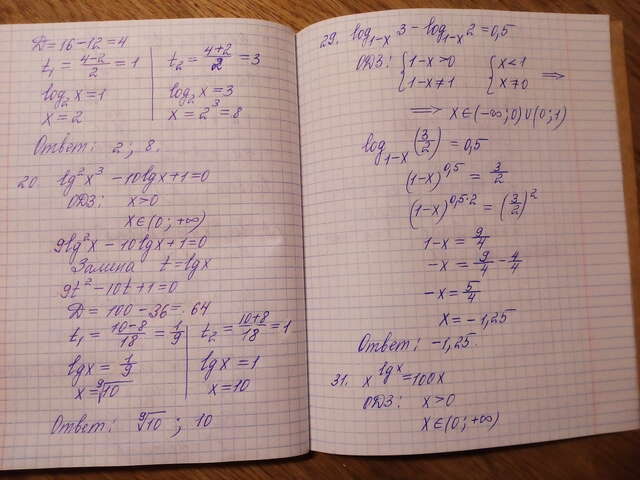 D = 16 - 12 = 4
t₁ = (4-2)/2 = 1 | t₂ = (4+2)/2 = 3
log₂ x = 1 | log₂ x = 3
x = 2 | x = 2³ = 8
Ответ: 2; 8.
20. lg²x³ - 10lgx + 1 = 0
ОДЗ: x > 0
x ∈ (0; +∞)
9lg²x - 10lgx + 1 = 0
Замена t = lgx
9t² - 10t + 1 = 0
D = 100 - 36 = 64
t₁ = (10-8)/18 = 1/9 | t₂ = (10+8)/18 = 1
lgx = 1/9 | lgx = 1
x = ⁹√10 | x = 10
Ответ: ⁹√10; 10
29. log₁₋ₓ 3 - log₁₋ₓ 2 = 0,5
ОДЗ: { 1-x > 0 { x < 1
{ 1-x ≠ 1 { x ≠ 0 ⟹
⟹ x ∈ (-∞; 0) ∪ (0; 1)
log₁₋ₓ (3/2) = 0,5
(1-x)^0,5 = 3/2
(1-x)^0,5·2 = (3/2)²
1-x = 9/4
-x = 9/4 - 4/4
-x = 5/4
x = -1,25
Ответ: -1,25.
31. x^lgx = 100x
ОДЗ: x > 0
x ∈ (0; +∞)